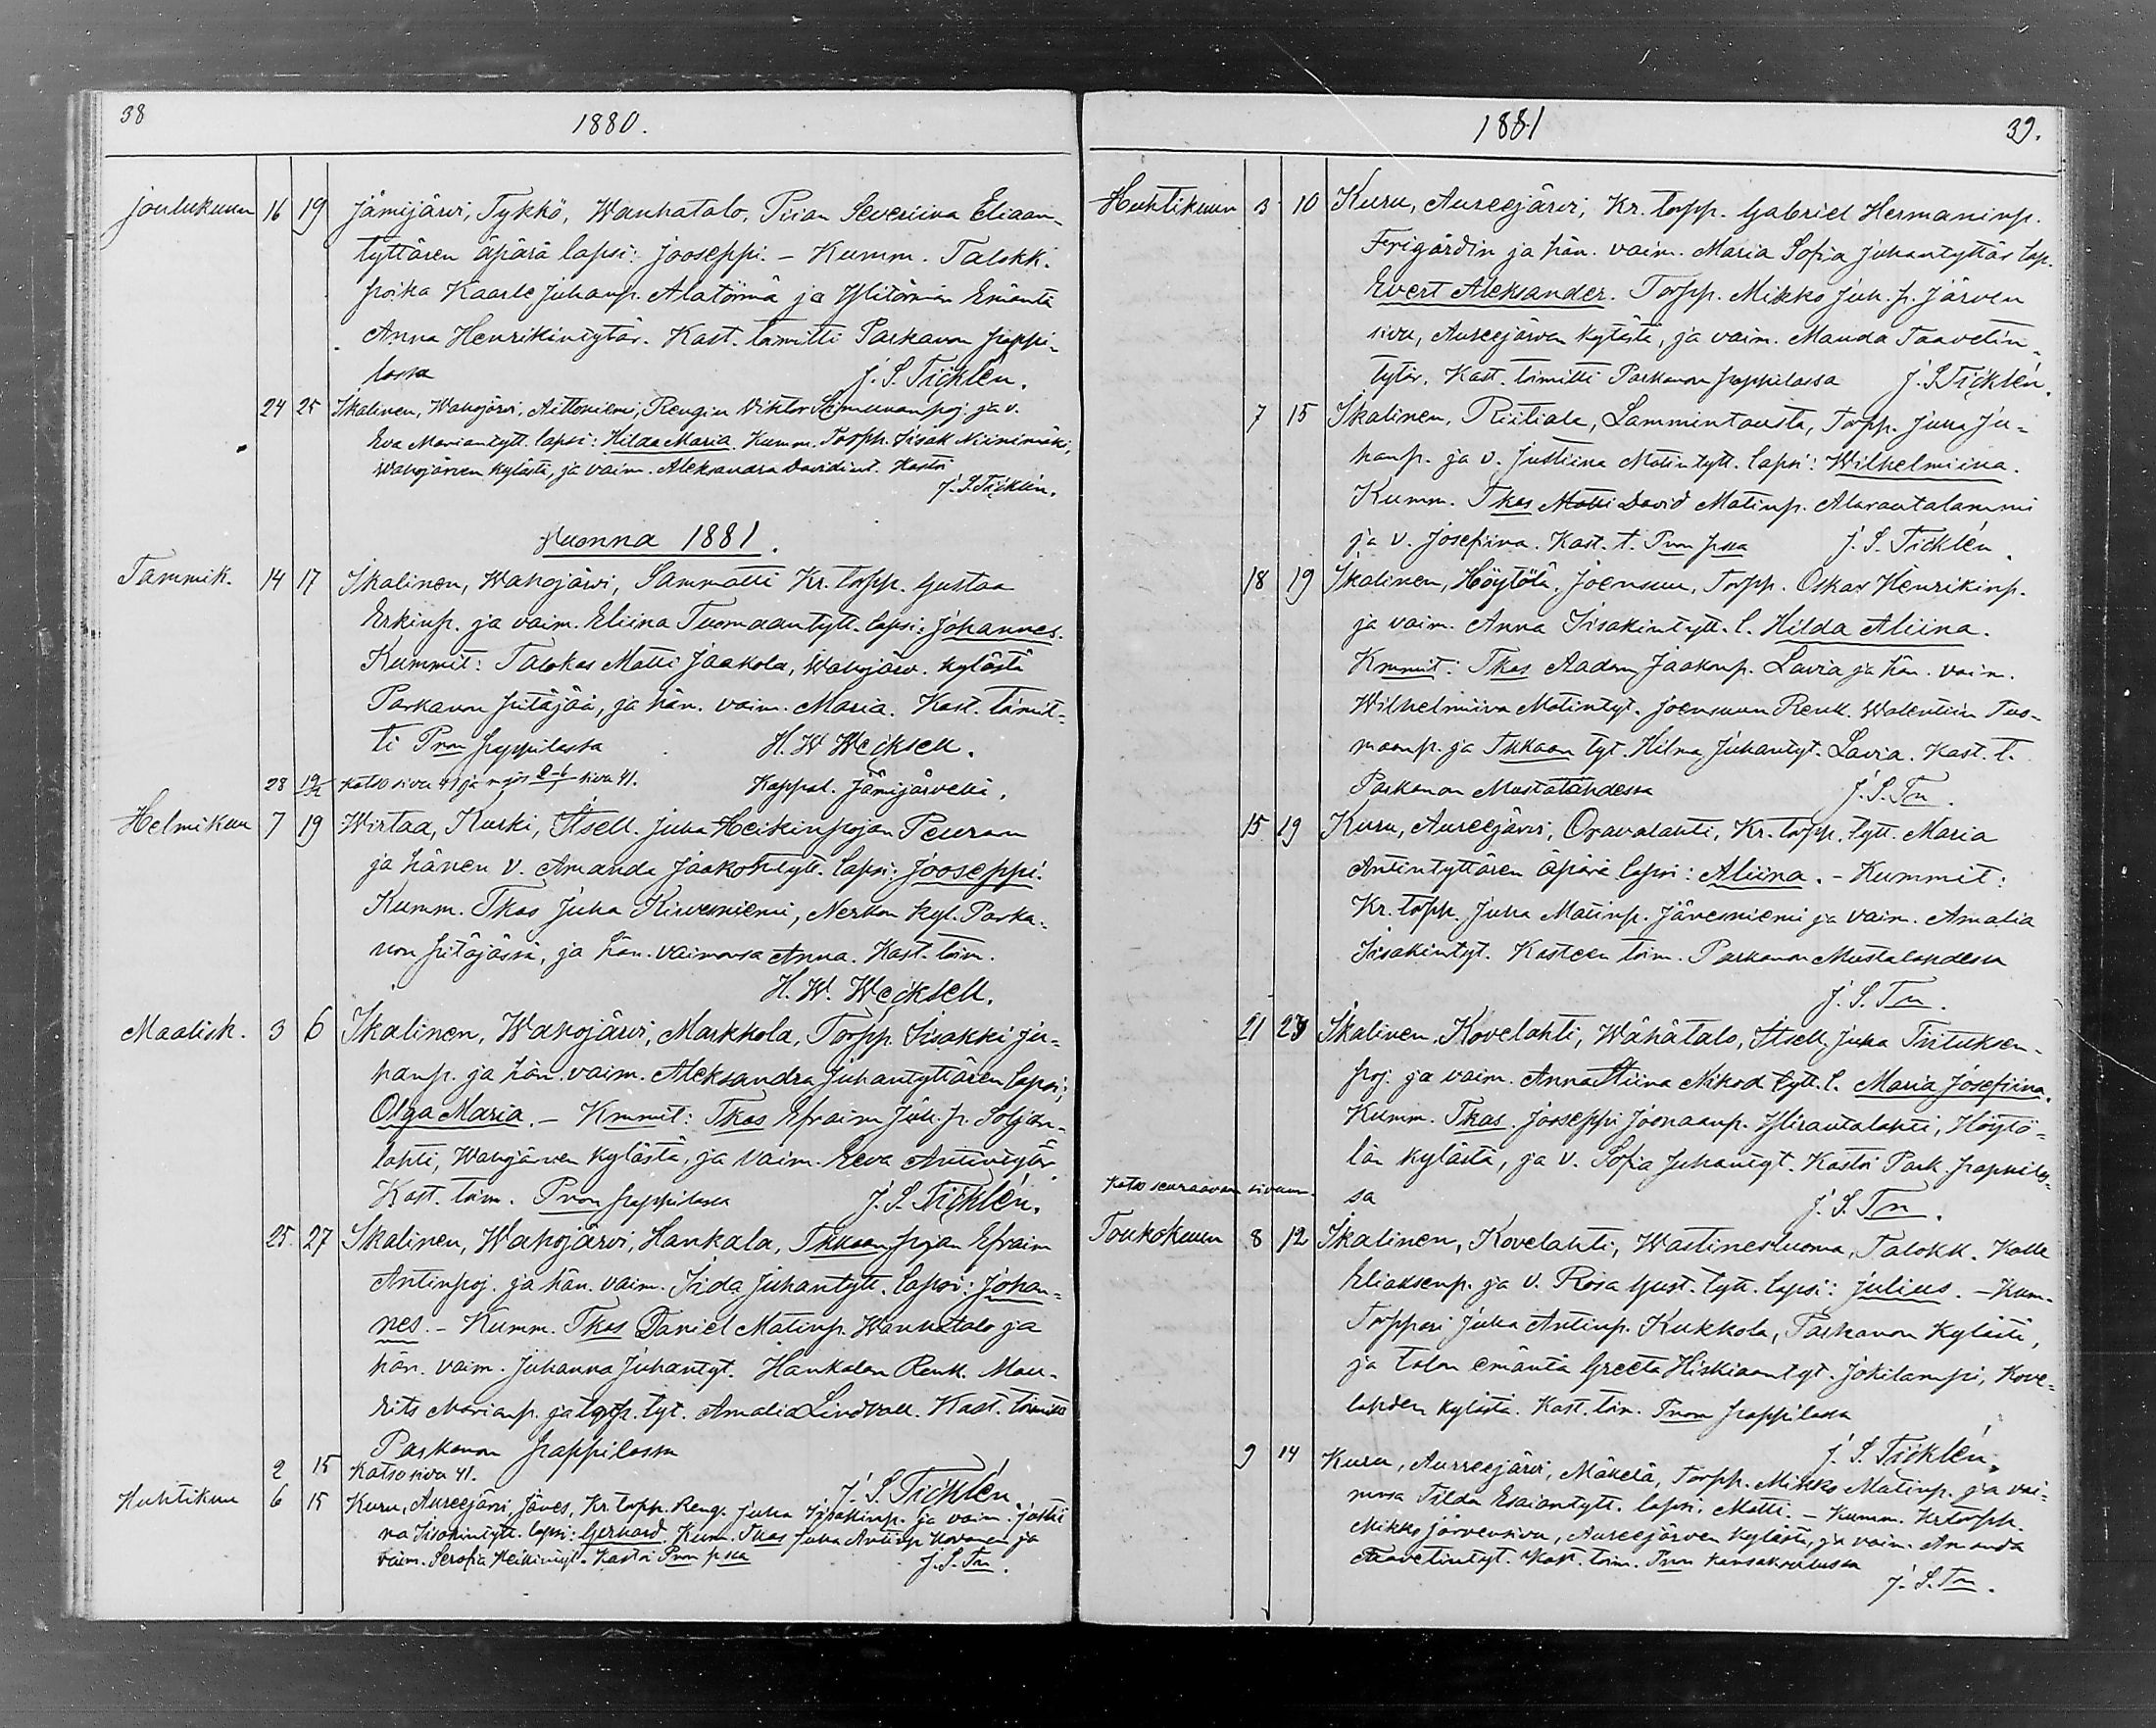 38
1880.
Joulukuun 16 19 Jämijärvi, Tykkö, Wanhatalo, Piian Severiina Eliaan-
tyttären äpärä lapsi: Jooseppi. - Kumm. Talokk.
poika Kaarle Juhanp. Alatörmä ja Ylitörmän Emäntä
Anna Henrikintytär. Kast. toimitti Parkanon pappi-
lassa J. S. Ticklén.
24 25 Ikalinen, Wahojärvi, Aittoniemi, Rengin Viktor Seimunanpoj. ja v.
Eva Mariantytt. lapsi: Hilda Maria. Kumm. Torpp. Iisak Niinimäki,
Wahojärven kylästä, ja vaim. Aleksandra Davidint. Kastoi
J. S. Ticklén.
Vuonna 1881.
Tammik. 14 17 Ikalinen, Wahojärvi, Sammatti Kr. torpp. Gustaa
Erkinp. ja vaim. Eliina Tuomaantytt. lapsi: Johannes.
Kummit: Talokas Matti Jaakola, Wahojärv. kylästä
Parkanon pitäjää, ja hän. vaim. Maria. Kast. toimit-
ti Pnon pappilassa H. W Wecksell.
Kappal. Jämijärvellä.
28 19/2 Katso sivu 41 ja myös sivu 41.
Helmikuu 7 19 Wirtaa, Kurki, Itsell. Juha Heikinpojan Peuran
ja hänen v. Amanda Jaakontytt. lapsi: Jooseppi.
Kumm. Tkas Juha Kirvesniemi, Nerkon kyl. Parka-
non pitäjässä, ja hän. vaimonsa Anna. Kast. toim.
H. W. Wecksell.
Maalisk. 3 6 Ikalinen, Wahojärvi, Markkola, Torpp. Iisakki Ju-
hanp. ja hän. vaim. Aleksandra Juhantyttären lapsi;
Olga Maria. - Kmmit: Tkas Efraim Juh. p. Poljan-
lahti, Wahojärven kylästä, ja vaim. Eeva Antintytär
Kast. toim. Pnon pappilassa J. S. Ticklén.
25. 27 Ikalinen, Wahojärvi, Hankala, Tkkaan pojan Efraim
Antinpoj. ja hän. vaim. Iida Juhantytt. lapsi: Johan-
nes. - Kumm. Tkas Daniel Matinp. Wanhatalo ja
hän. vaim. Juhanna Juhantyt. Hankalan Renk. Mau-
rits Marianp. ja torp. tyt. Amalia Lindvall. Kast. toimitti
Parkanon pappilassa
J. S. Ticklén.
2 15 Katso sivu 41.
Huhtikuu 6 15 Kuru, Aureejärvi, Jäves, Kr. torpp. Reng. Juha Iisakinp. ja vaim. Justii
na Iisakintytt. lapsi: Gerhard. Kum. Tkas Juha Antinp. Kovanen ja
vaim. Serafia Heikintyt. Kastoi Pnon pssa J. S. Tn.
1881
39.
Huhtikuun 3 10 Kuru, Aureejärvi, Kr. torpp. Gabriel Hermaninp.
Frigårdin ja hän. vaim. Maria Sofia Juhantyttär lap.
Evert Aleksander. Torpp. Mikko Juh. p. Järven
sivu, Aureejärven kylästä, ja vaim. Manda Taavetin-
tytär. Kast. toimitti Parkanon pappilassa J. S. Ticklén.
7 15 Ikalinen, Riitiala, Lammintausta, Torpp. Juha Ju-
hanp. ja v. Justiina Matintytt. lapsi: Wilhelmiina.
Kumm. Tkas Matti David Matinp. Alarautalammi
ja v. Josefiina. Kast. t. Pnon pssa J. S. Ticklén.
18 19 Ikalinen, Höytölä, Joensuu, Torpp. Oskar Henrikinp.
ja vaim. Anna Iisakintytt. l. Hilda Aliina.
Kmmit: Tkas Aadam Jaakonp. Lavia ja hän. vaim.
Wilhelmiina Matintyt. Joensuun Renk. Walentiin Tuo-
maanp. ja Tkkaan tyt. Hilma Juhantyt. Lavia. Kast. t.
Parkanon Mustalahdessa J. S. Tn.
15. 19 Kuru, Aureejärvi, Oravalahti, Kr. torpp. tytt. Maria
Antintyttären äpärä lapsi: Aliina. - Kummit:
Kr. torpp. Juha Matinp. Jävesniemi ja vaim. Amalia
Iisakintyt. Kasteen toim. Parkanon Mustalahdessa
J. S. Tn.
21 23 Ikalinen, Kovelahti, Wähätalo, Itsell. Juha Tiituksen-
poj. ja vaim. Anna Stiina Nikod. tytt. l. Maria Josefiina.
Kumm. Tkas. Jooseppi Joonaanp. Ylirautalahti, Höytö-
län kylästä, ja v. Sofia Juhantyt. Kastoi Park. pappilas-
sa J. S. Tn.
Katso seuraavan sivuun.
Toukokuun 8 12 Ikalinen, Kovelahti, Wastinesluoma, Talokk. Kalle
Eliaksenp. ja v. Rosa Gust. tytt. lapsi: Julius. - Kum-
Torppari Juha Antinp. Kukkola, Parkanon kylästä,
ja talon emäntä Greeta Hiskiaantyt. Jokilampi, Kove-
lahden kylästä. Kast. toim. Pnon pappilassa
J. S. Ticklén.
9 14 Kuru, Aureejärvi, Mäkelä, Torpp. Mikko Matinp. ja vai-
monsa Tilda Esaiantytt. lapsi: Matti. - Kumm. Kr torpp.
Mikko Järvensivu, Aureejärven kylästä, ja vaim. Amanda
Taavetintyt. Kast. toim. Pnon kansakoulussa
J. S. Tn.